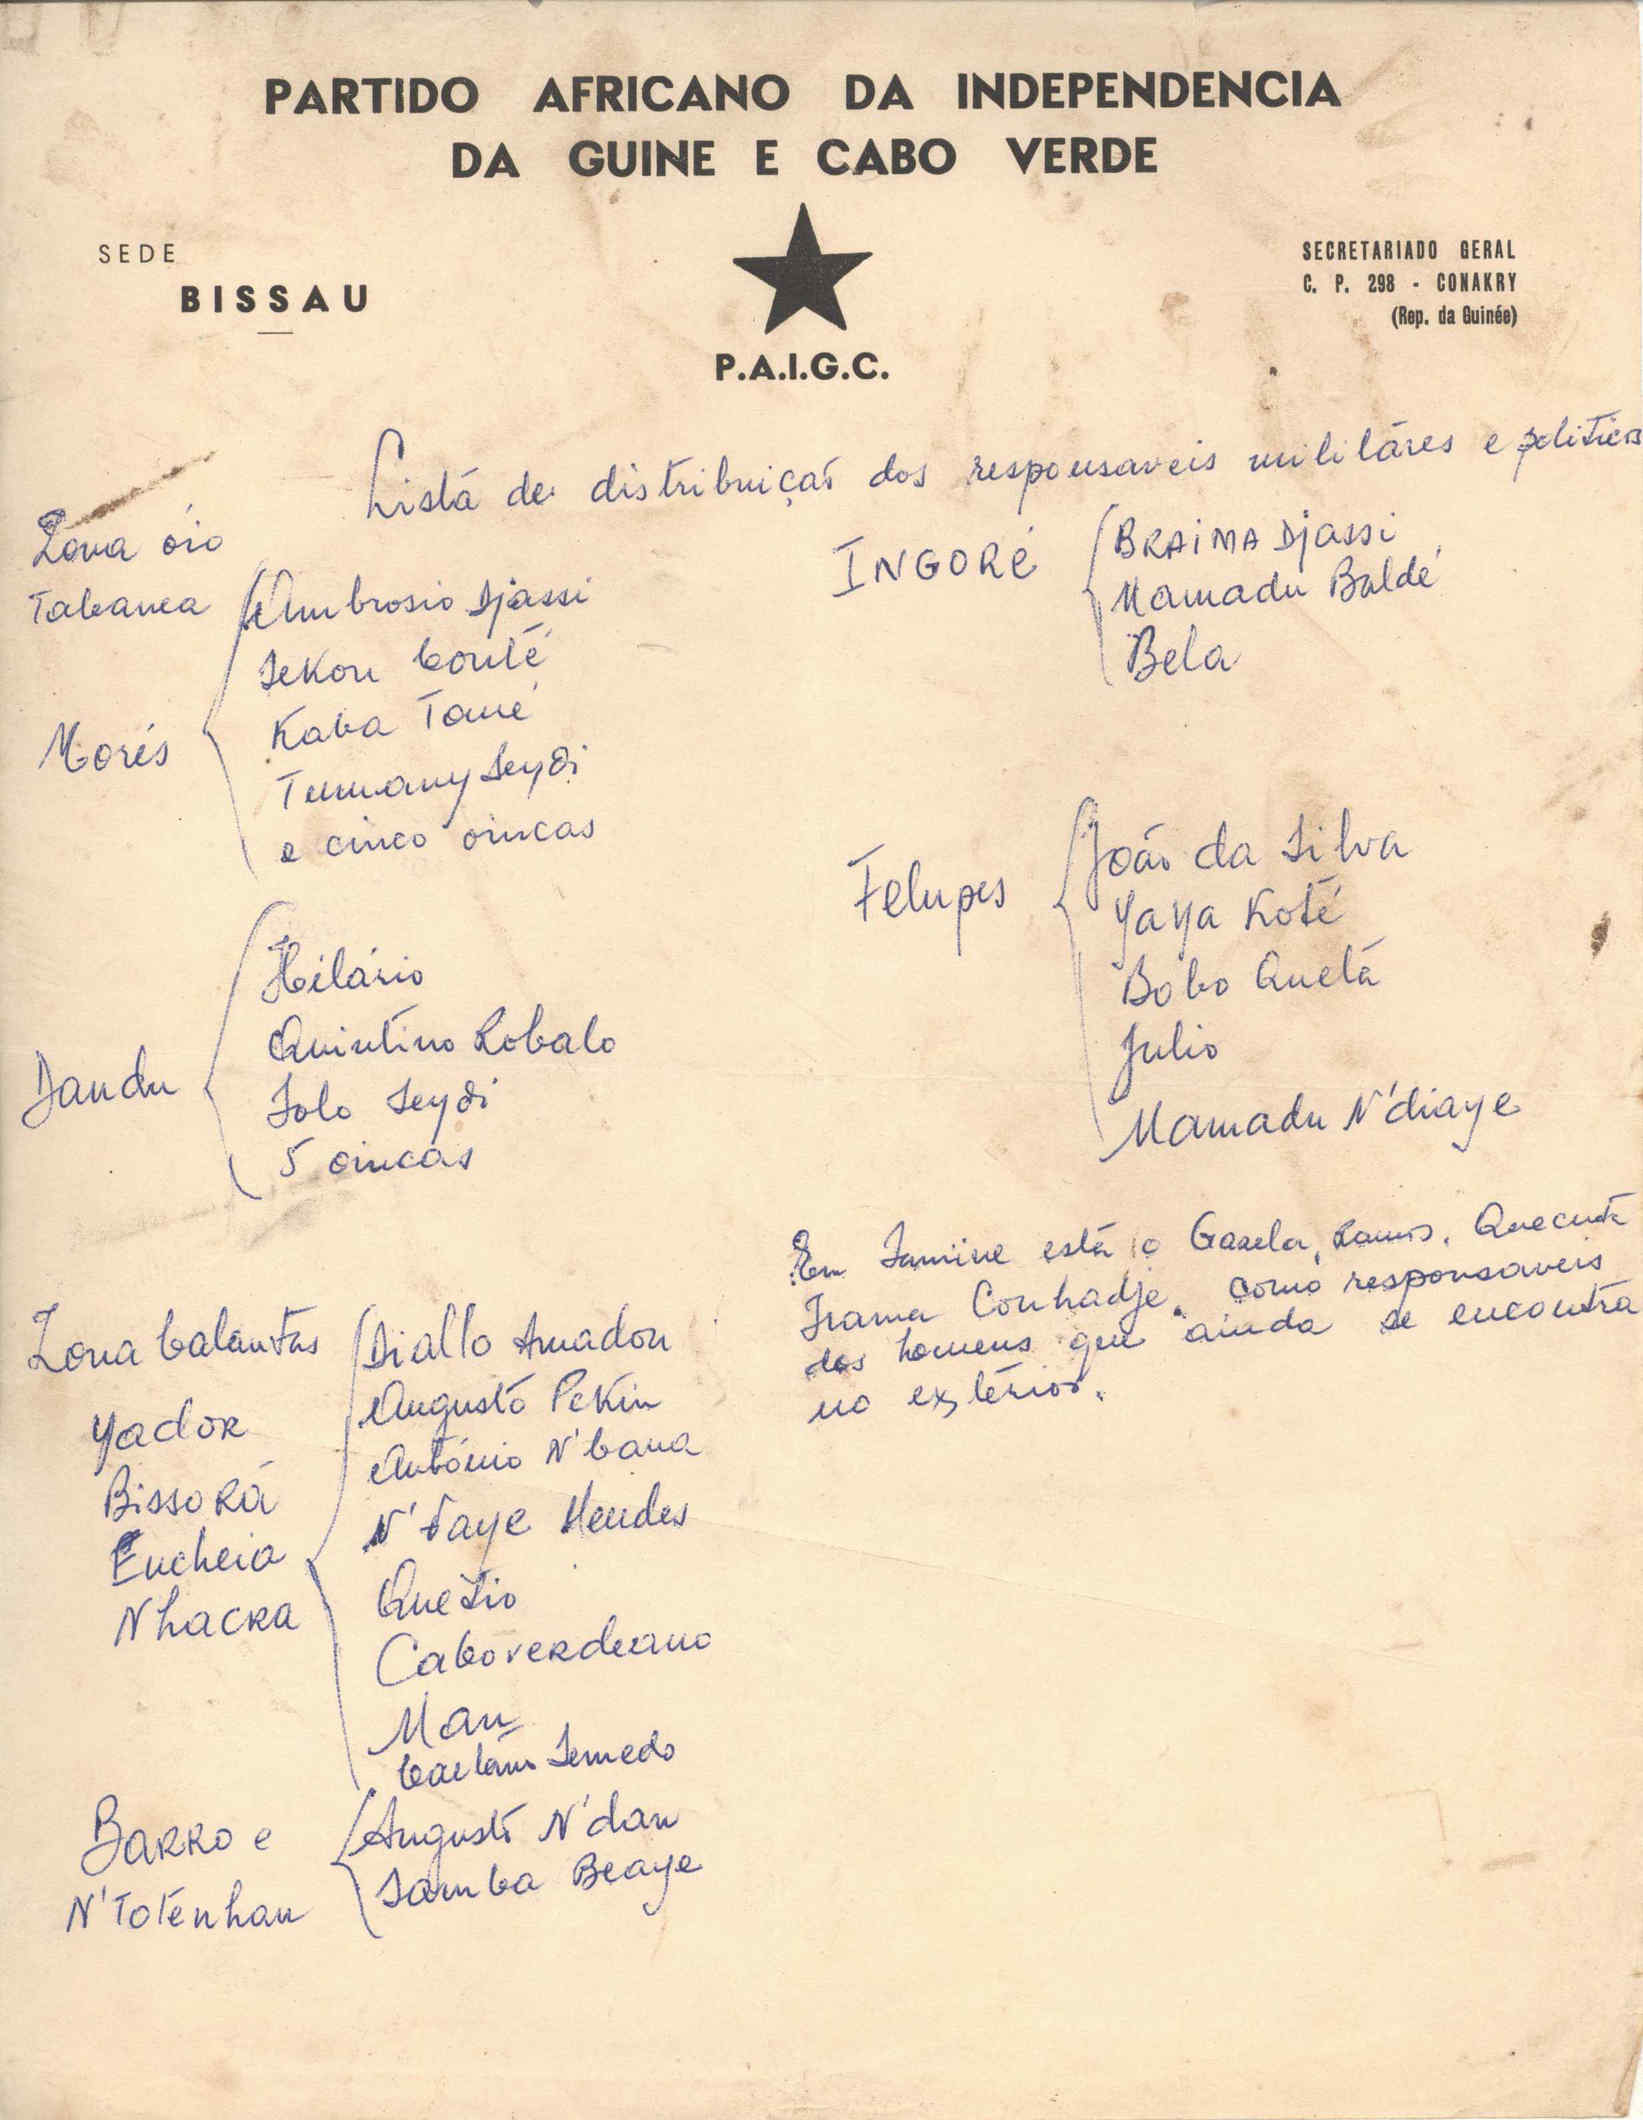 PARTIDO AFRICANO DA INDEPENDENCIA
DA GUINE E CABO VERDE
SEDE
BISSAU
P.A.I.G.C.
SECRETARIADO GERAL
C. P. 298 - CONAKRY
(Rep. da Guinée)
Listá de distribuiçaõ dos responsaveis militáres e politicos
Zona óio
Tabanca
Morés
Ambrosio Djassi
Sekou Conté
Kaba Tomé
Tumany Seydi
e cinco oincas
Dandu
Hélário
Quintino Robalo
Solo Seydi
5 oincas
Zona balantas
Yador
BissoRá
Encheia
NhacRa
Diallo Amadou
Augusto Pekin
António N'bana
N'faye Mendes
Quesio
CaboveRdeano
Man
Caetano Semedo
BaRRo e
N'Totenhan
Augusto N'dan
Samba Beaye
INGORé
BRAiMA Djassi
Mamadu Baldé
Bela
Felupes
João da Silva
Yaya Koté
Bobo Quetá
Julio
Mamadu N'diaye
Em Samine está o Gazela, Ramos, Quecuta
Irama Conhadje. como responsaveis
dos homens que ainda se encontra
no extérior.